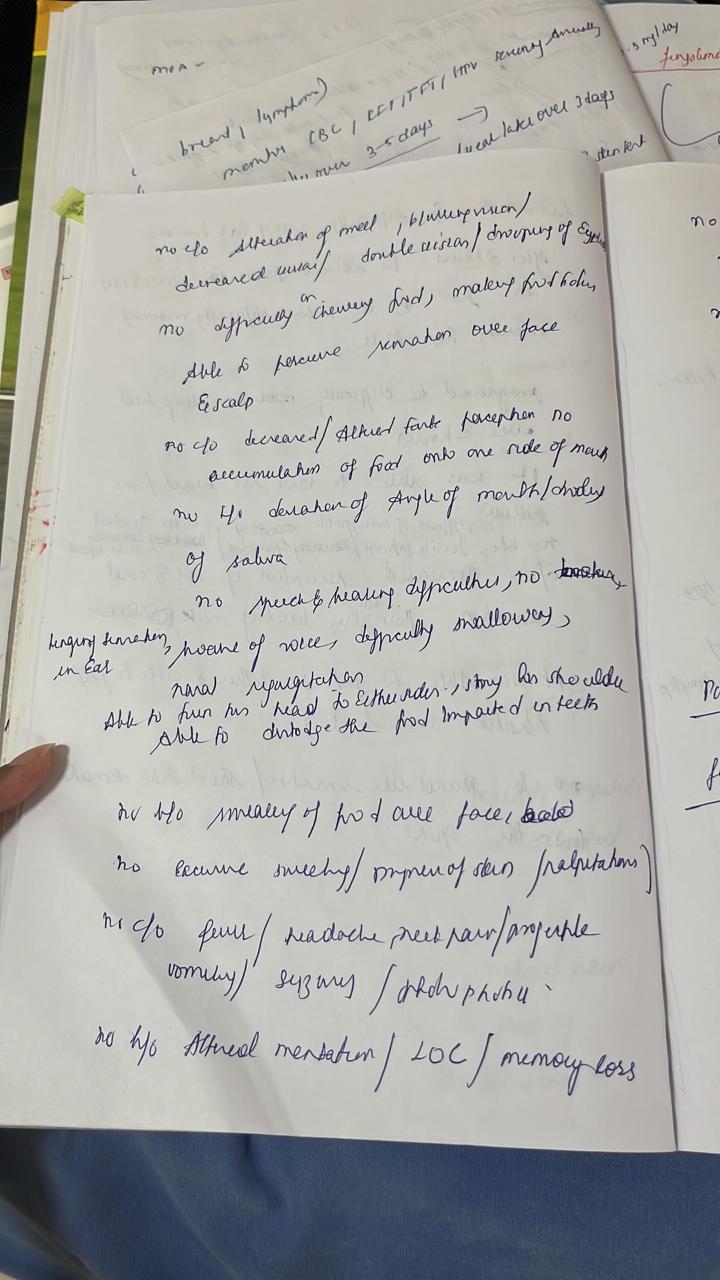 MOA -
breast, lymphoma)
monitor CBC / RFT / TFT / HPV screening Annually
over 3-5 days →
over 3 days
5 mg/day
no c/o Alteration of smell, blurring vision /
decreased vision / double vision / drooping of Eyelids
no difficulty in chewing food, making food bolus,
Able to perceive sensation over face
& scalp
no c/o decreased / Altered taste perception no
accumulation of food onto one side of mouth
no h/o deviation of Angle of mouth / drooling
of saliva
no speech & hearing difficulties, no
ringing sensation, hoarse of voice, difficulty swallowing,
in Ear
nasal regurgitation
Able to turn his head to Either side, shrug his shoulder
Able to dislodge the food impacted in teeth
no h/o smearing of food over face,
no Excessive sweating / dryness of skin / palpitations)
no c/o fever / headache, neck pain / projectile
vomiting / seizures / photophobia
no h/o Altered mentation / LOC / memory loss
no